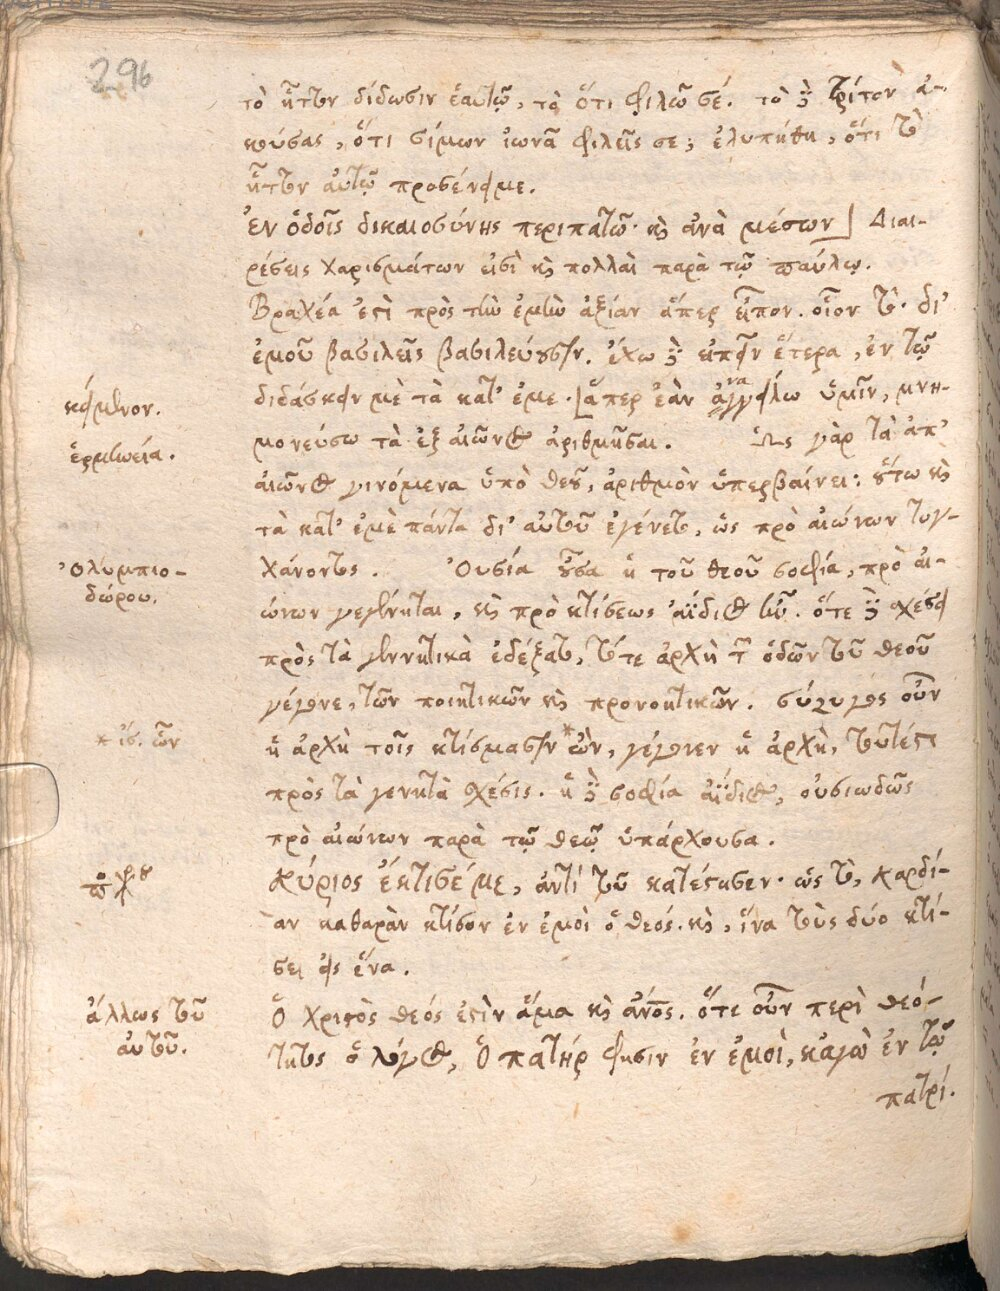 296
τὸ ἧττον δίδωσιν ἑαυτῷ, τὸ ὅτι φιλῶ σέ. τὸ δὲ τρίτον ἀ-
κούσας, ὅτι σίμων ἰωνᾶ φιλεῖς σε; ἐλυπήθη, ὅτι τὸ
ἧττον αὐτῷ προσένειμε.
Ἐν ὁδοῖς δικαιοσύνης περιπατῶ· κỳ ἀνὰ μέσων] Διαι-
ρέσεις χαρισμάτων εἰσὶ κỳ πολλαὶ παρὰ τῷ παύλῳ.
Βραχέα ἐστὶ πρὸς τὴν ἐμὴν ἀξίαν ἅπερ εἶπον. οἷον τὸ· δι'
ἐμοῦ βασιλεῖς βασιλεύουσιν. ἔχω δὲ εἰπεῖν ἕτερα, ἐν τῷ
διδάσκειν μὲ τὰ κατ' ἐμε. [ἅπερ ἐὰν ἀναγγείλω ὑμῖν, μνη-
κείμενον.
μονεύσω τὰ ἐξ αἰῶνος ἀριθμῆσαι. Ὡς γὰρ τὰ ἀπ'
ἑρμηνεία.
αἰῶνος γινόμενα ὑπὸ θεοῦ, ἀριθμὸν ὑπερβαίνει: οὕτω κỳ
τὰ κατ' ἐμὲ πάντα δι' αὐτοῦ ἐγένετο, ὡς πρὸ αἰώνων τυγ-
χάνοντος. Οὐσία οὖσα ἡ τοῦ θεοῦ σοφία, πρὸ αἰ-
Ὀλυμπιο-
δώρου.
ώνων γεγέννηται, κỳ πρὸ κτίσεως ἀΐδιος ἦν. ὅτε δὲ σχέσει
πρὸς τὰ γεννητικὰ ἐδέξατο, τότε ἀρχὴ τῶν ὁδῶν τοῦ θεοῦ
γέγονε, τῶν ποιητικῶν κỳ προνοητικῶν. σύζυγος οὖν
ἡ ἀρχὴ τοῖς κτίσμασιν *ὢν, γέγονεν ἡ ἀρχὴ, τουτέστι
* ἴσ. ὧν
πρὸς τὰ γενητὰ σχέσις. ἡ δὲ σοφία ἀΐδιος, οὐσιωδῶς
πρὸ αἰώνων παρὰ τῷ θεῷ ὑπάρχουσα.
Κύριος ἔκτισέ με, ἀντὶ τοῦ κατέστησεν· ὡς τὸ, καρδί-
αν καθαρὰν κτίσον ἐν ἐμοὶ ὁ θεός. κỳ, ἵνα τοὺς δύο κτί-
σει εἰς ἕνα.
Ὁ χριστὸς θεός ἐστὶν ἅμα κỳ ἄνος. ὅτε οὖν περὶ θεό-
ἄλλως τοῦ
αὐτοῦ.
τητος ὁ λόγος, Ὁ πατήρ φησιν ἐν ἐμοὶ, κᾀγὼ ἐν τῷ
πατρί.